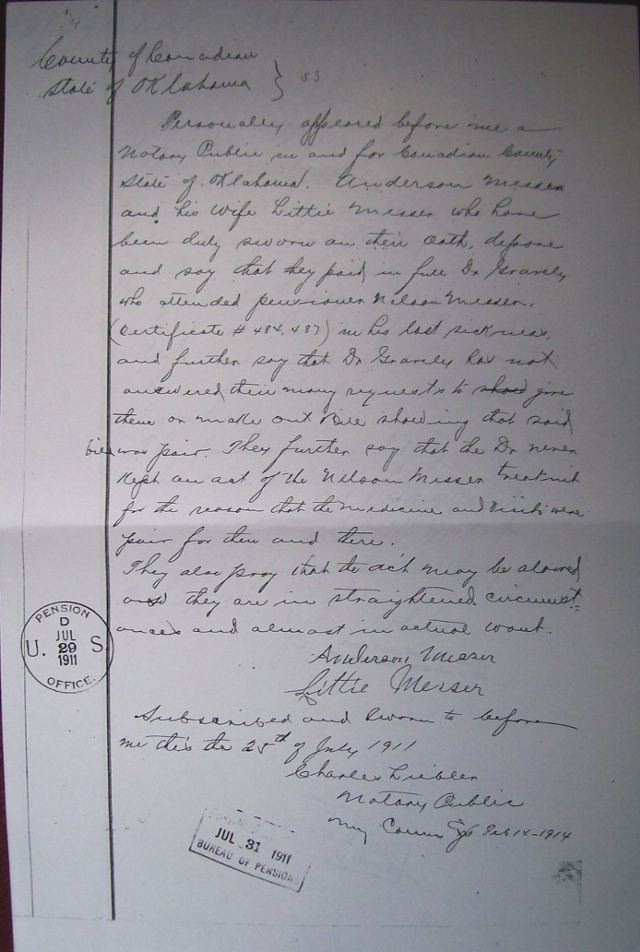 County of Canadian
State of Oklahoma } SS
Personally appeared before me a
Notary Public in and for Canadian County
State of Oklahoma. Anderson Messer
and his Wife Littie Messer who have
been duly sworn on their oath, depose
and say that they paid in full Dr Gravely
who attended pensioner Nelson Messer.
(Certificate # 484,487) in his last sickness,
and further say that Dr Gravely has not
answered their many requests to show give
them or make out Bill showing that said
bill was paid. They further say that the Dr never
kept an act of the Nelson Messer treatment
for the reason that the medicine and Visits were
paid for then and there.
They also pray that the ac't may be alowed
as they are in straightened circumst-
ances and almost in actual want.
Anderson Messer
Littie Messer
Subscribed and Sworn to before
me this the 25th of July 1911
Charles Liebler
Notary Public
My Comm Exp Feb 14-1914
PENSION
D
JUL
29
1911
U. S.
OFFICE.
JUL 31 1911
BUREAU OF PENSIONS